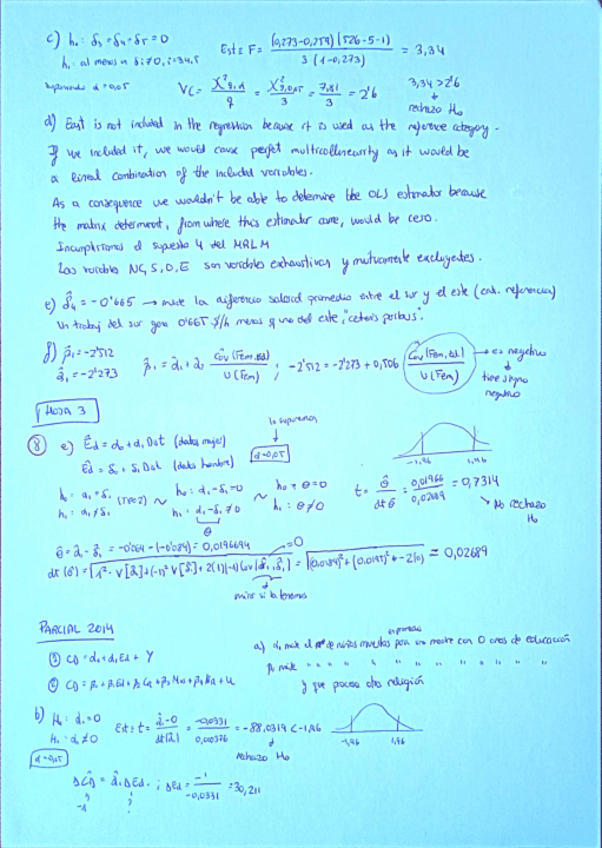 c) h₀: δ₃=δ₄=δ₅=0 Est= F= (0,273-0,259)(526-5-1) / 3(1-0,273) = 3,34
h₁: al menos un δi≠0, i=3,4,5
suponiendo α=0,05 Vc= χ²q,α / q = χ²3,0,05 / 3 = 7,81 / 3 = 2'6 3,34>2'6
rechazo H₀
d) East is not included in the regression because it is used as the reference category.
If we included it, we would cause perfet multicollinearity as it would be
a lineal combination of the included variables.
As a consequence we wouldn't be able to determine the OLS estimator because
the matrix determinent, from where this estimator come, would be cero.
Incumpliriamos el supuesto 4 del MRLM
Las variables NC, S, O, E son variables exhaustivas y mutuamente excluyentes.
e) δ̂₄ = -0'665 → mide la diferencia salarial promedio entre el sur y el este (cat. referencia)
Un trabaj del sur gana 0'665 $/h menos q uno del este, "ceteris paribus".
f) β̂₁=-2'512 β̂₁ = α̂₁ + α̂₂ Cov(Fem,Ed) / V(Fem) ; -2'512=-2'273+0,506 Cov(Fem,Ed) / V(Fem) → es negativo
α̂₁=-2'273
tiene signo
negativo
HOJA 3
lo suponemos
8 e) Êd = α₀+α₁ Dat (datos mujer) α=0,05
Êd = δ₀ + δ₁ Dat (datos hombre) -1,96 1,96
h₀: α₁=δ₁ (TIPO 2) ~ h₀: α₁-δ₁=0 ~ h₀ = θ=0 t= θ̂ / dt θ̂ = 0,01966 / 0,02689 = 0,7314
h₁: α₁≠δ₁ h₁: α₁-δ₁≠0 h₁: θ≠0 No rechazo
θ H₀
θ̂=α̂₁-δ̂₁ = -0'064-(-0'084)= 0,0196694 =0
dt(θ̂)=√1²·V[α̂₁]+(-1)²V[δ̂₁]+2(1)(-1)Cov(α̂₁,δ̂₁) = √(0,0184)²+(0,0195)²+-2(0) = 0,02689
PARCIAL 2014
en promedio
① CD=α₀+α₁Ed+Y a) α₀ mide el nº de niños muertos para una madre con 0 años de educación
β₀ mide " " " " " " " " " " "
② CD=β₀+β₁Ed+β₂Ca+β₃Mus+β₄Ra+u y que procesa otra religión
b) H₀: α₁=0 Est=t= α̂₁-0 / dt(α̂₁) = -0,0331 / 0,000376 = -88,0319<-1,96
H₁: α₁≠0 -1,96 1,96
α=0,05 rechazo H₀
ΔCD̂ = α̂₁ΔEd. ; ΔEd= -1 / -0,0331 =30,211
-1 ?